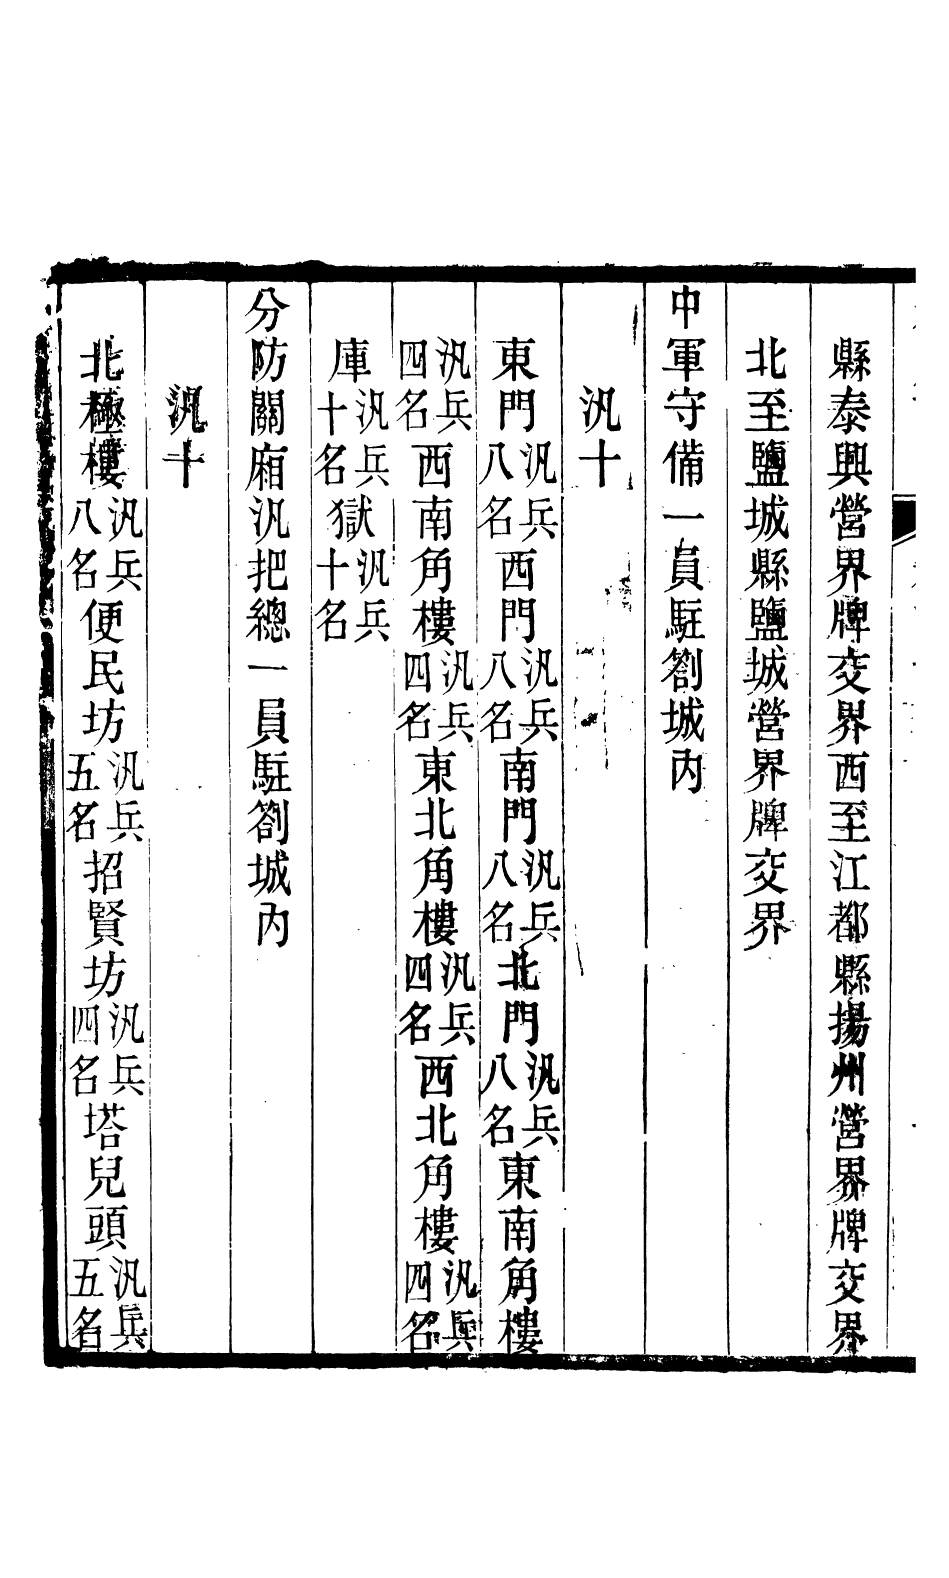 縣泰興營界牌交界西至江都縣揚州營界牌交界
北至鹽城縣鹽城營界牌交界
中軍守備一員駐劄城內
汛十
東門汛兵八名西門汛兵八名南門汛兵八名北門汛兵八名東南角樓
汛兵四名西南角樓汛兵四名東北角樓汛兵四名西北角樓汛兵四名
庫汛兵十名獄汛兵十名
分防關廂汛把總一員駐劄城內
汛十
北極樓汛兵八名便民坊汛兵五名招賢坊汛兵四名塔兒頭汛兵五名